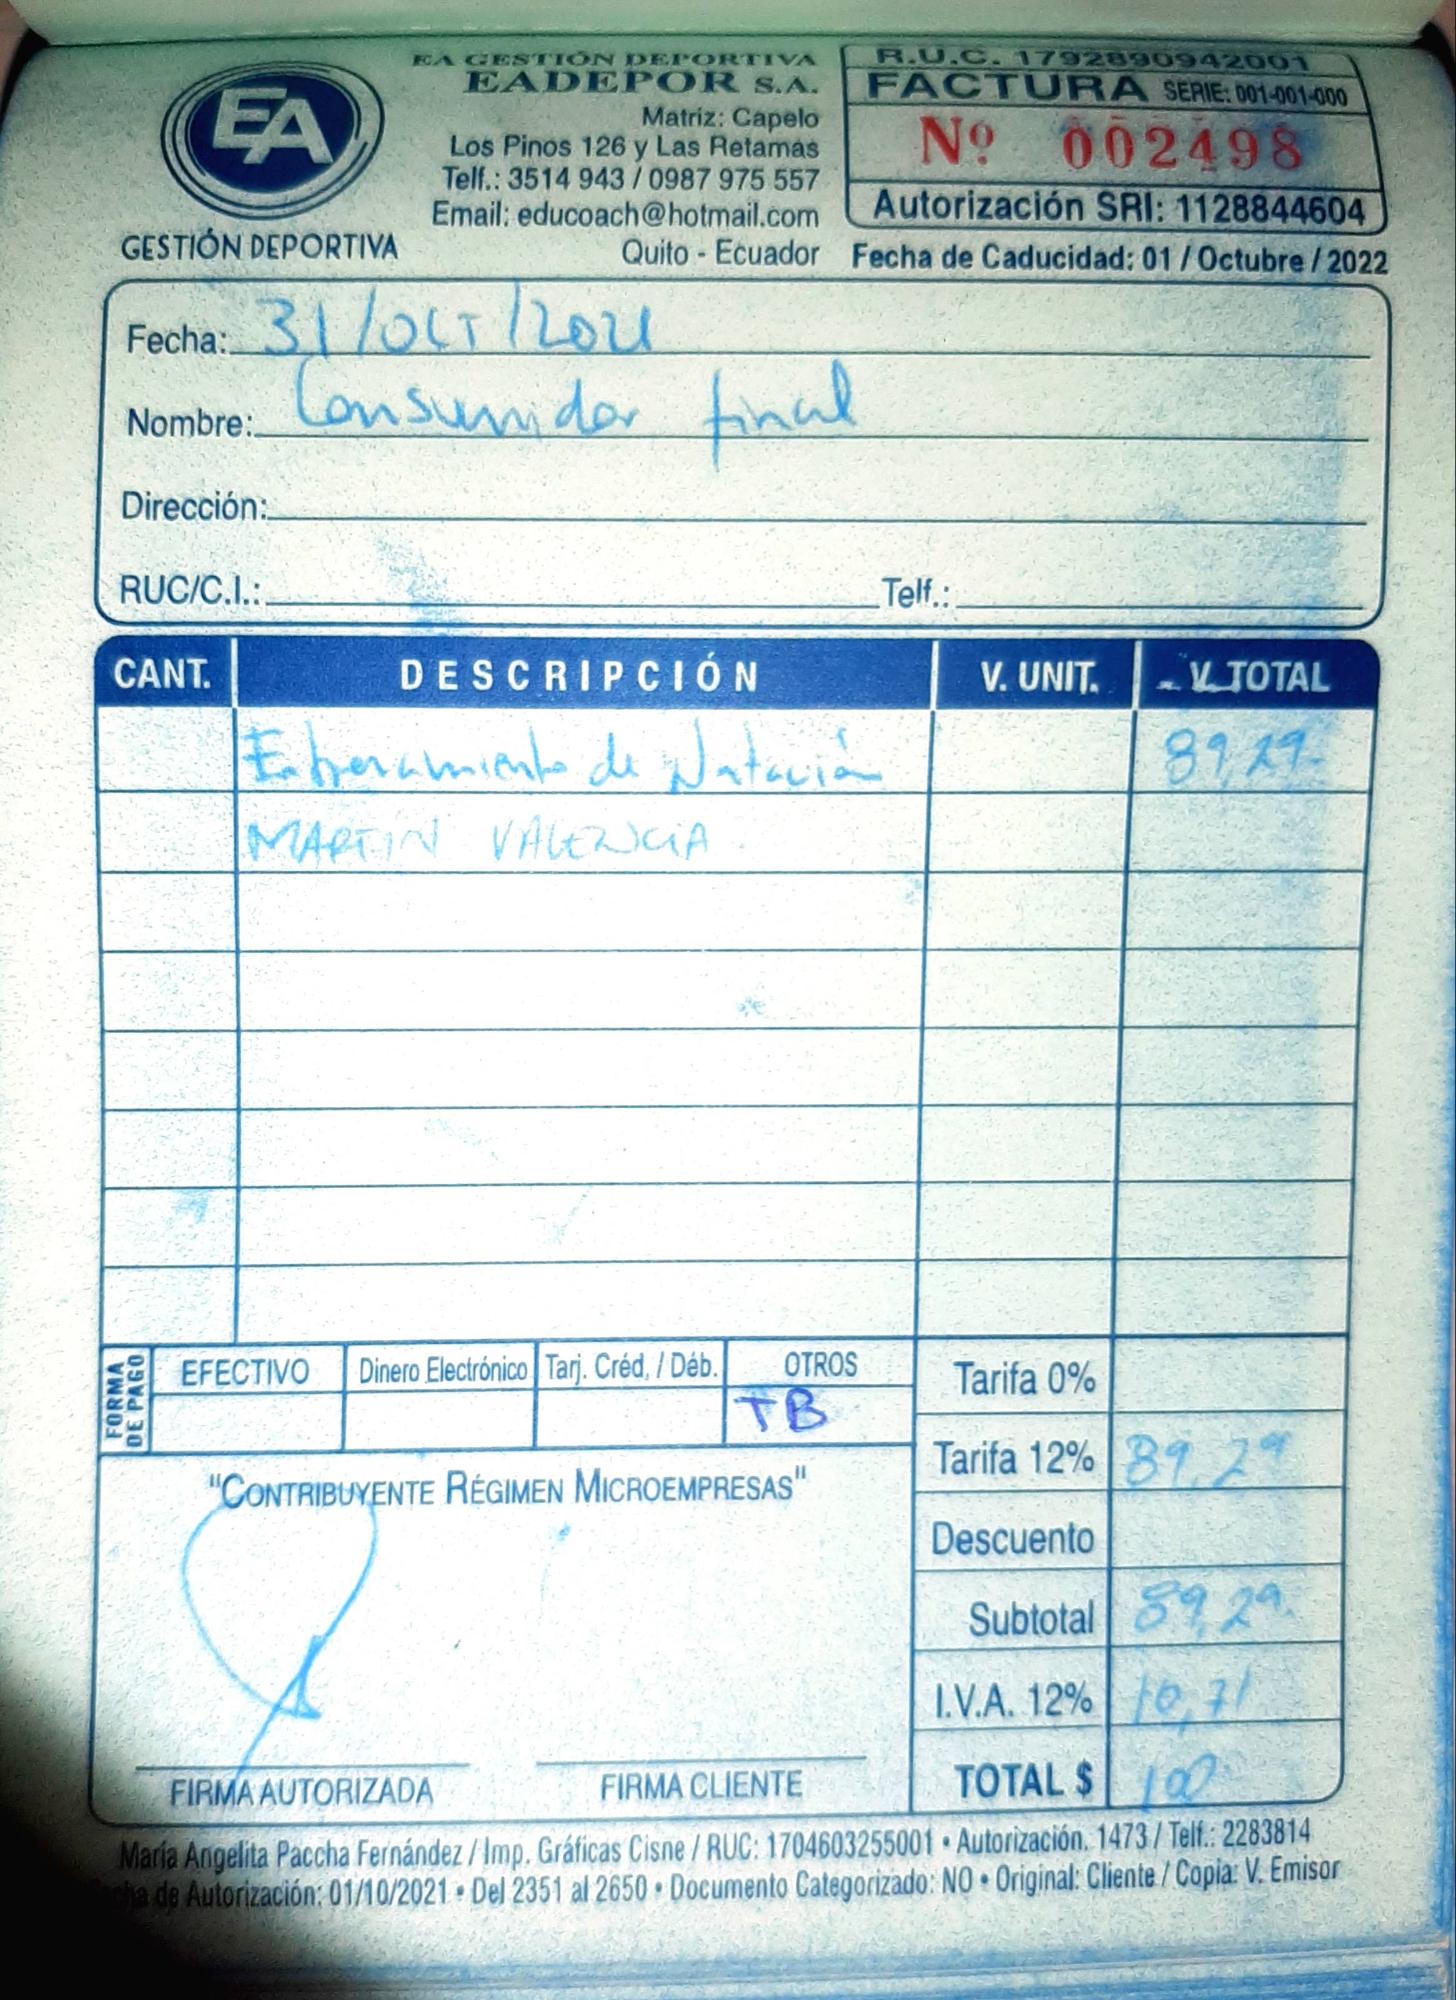 EA
GESTIÓN DEPORTIVA
EA GESTIÓN DEPORTIVA
EADEPOR S.A.
Matriz: Capelo
Los Pinos 126 y Las Retamas
Telf.: 3514 943 / 0987 975 557
Email: educoach@hotmail.com
Quito - Ecuador
R.U.C. 1792890942001
FACTURA SERIE: 001-001-000
Nº 002498
Autorización SRI: 1128844604
Fecha de Caducidad: 01 / Octubre / 2022
Fecha: 31/OCT/2021
Nombre: Consumidor final
Dirección:
RUC/C.I.: Telf.:
CANT. DESCRIPCIÓN V. UNIT. V. TOTAL
Entrenamiento de Natación 89,29
MARTIN VALENCIA
FORMA DE PAGO
EFECTIVO Dinero Electrónico Tarj. Créd. / Déb. OTROS
TB
"CONTRIBUYENTE RÉGIMEN MICROEMPRESAS"
FIRMA AUTORIZADA FIRMA CLIENTE
Tarifa 0%
Tarifa 12% 89,29
Descuento
Subtotal 89,29
I.V.A. 12% 10,71
TOTAL $ 100
María Angelita Paccha Fernández / Imp. Gráficas Cisne / RUC: 1704603255001 • Autorización. 1473 / Telf.: 2283814
de Autorización: 01/10/2021 • Del 2351 al 2650 • Documento Categorizado: NO • Original: Cliente / Copia: V. Emisor